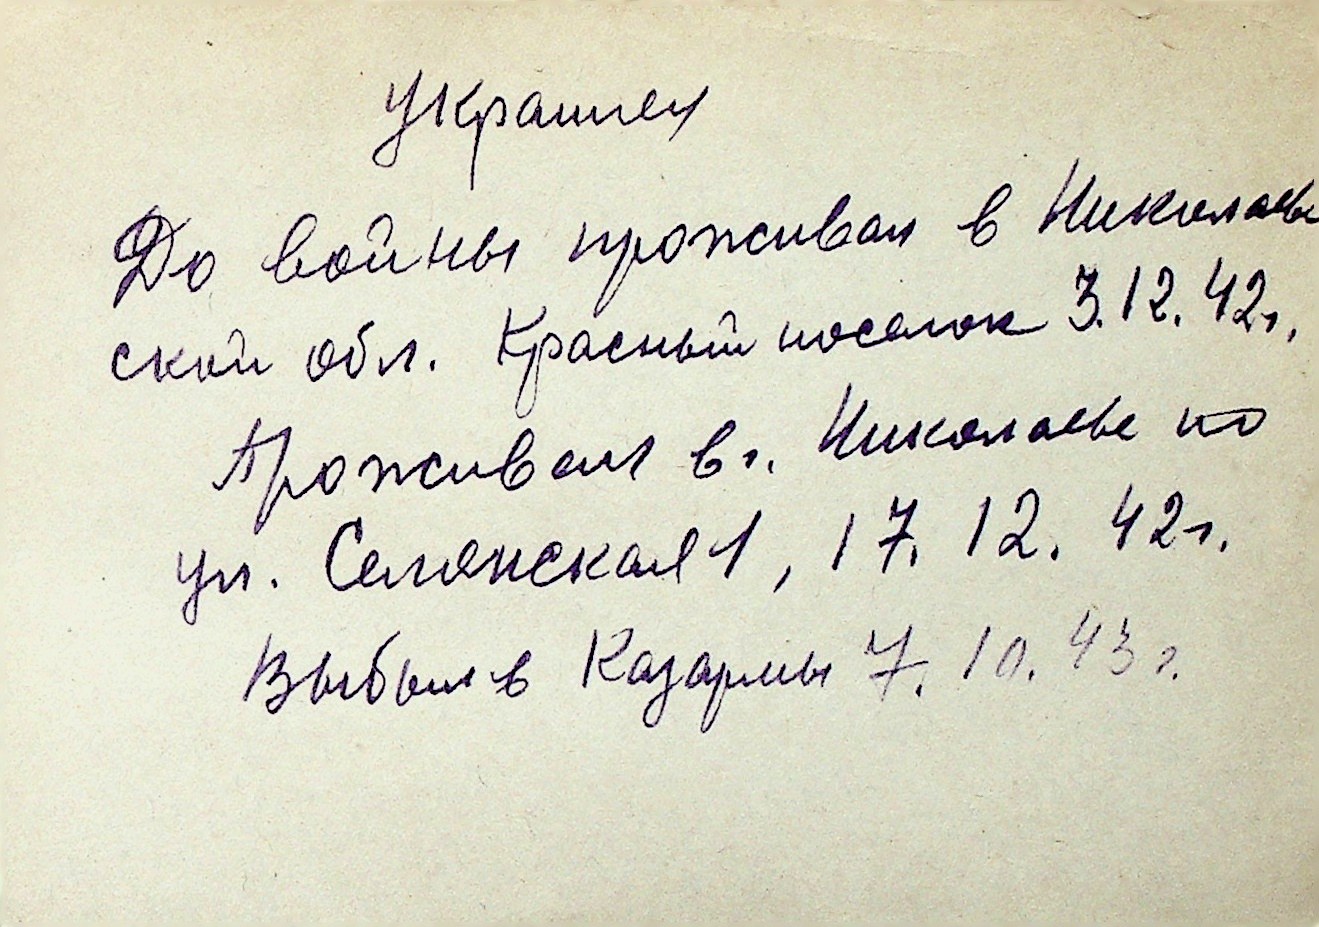 До войны проживал в Николаев
ской обл. Красный поселок 3.12.42г.
Проживал в г. Николаеве по
ул. Селянская 1, 17.12.42г.
Выбыл в Казармы 7.10.43г.